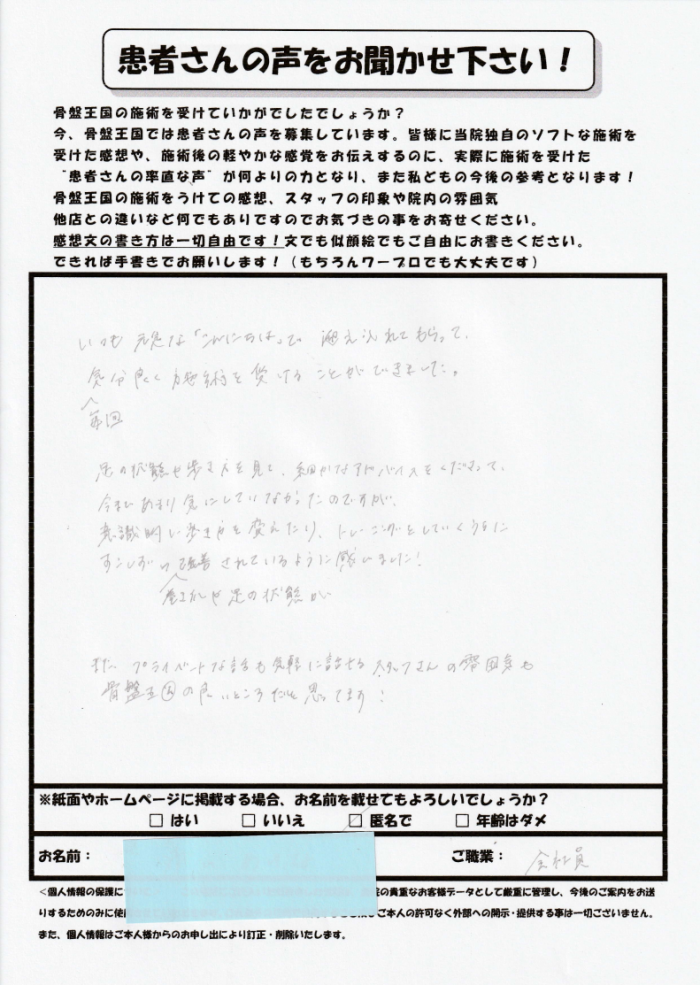 患者さんの声をお聞かせ下さい！
骨盤王国の施術を受けていかがでしたでしょうか？
今、骨盤王国では患者さんの声を募集しています。皆様に当院独自のソフトな施術を
受けた感想や、施術後の軽やかな感覚をお伝えするのに、実際に施術を受けた
“患者さんの率直な声”が何よりの力となり、また私どもの今後の参考となります！
骨盤王国の施術をうけての感想、スタッフの印象や院内の雰囲気
他店との違いなど何でもありですのでお気づきの事をお寄せください。
感想文の書き方は一切自由です！文でも似顔絵でもご自由にお書きください。
できれば手書きでお願いします！（もちろんワープロでも大丈夫です）
いつも元気な「こんにちは」で迎え入れてもらって、
気分良く施術を受けることができました。
毎回
足の状態や歩き方を見て、細かなアドバイスをくださって、
今まであまり気にしていなかったのですが、
意識的に歩き方を変えたり、トレーニングをしていくうちに
すこしずつ改善されているように感じました！
や足の状態が
また、プライベートな話も気軽に話せるスタッフさんの雰囲気も
骨盤王国の良いところだと思ってます！
※紙面やホームページに掲載する場合、お名前を載せてもよろしいでしょうか？
□ はい □ いいえ ☑ 匿名で □ 年齢はダメ
お名前： ご職業： 会社員
＜個人情報の保護に の貴重なお客様データとして厳重に管理し、今後のご案内をお送
りするためのみに使 ご本人の許可なく外部への開示・提供する事は一切ございません。
また、個人情報はご本人様からのお申し出により訂正・削除いたします。